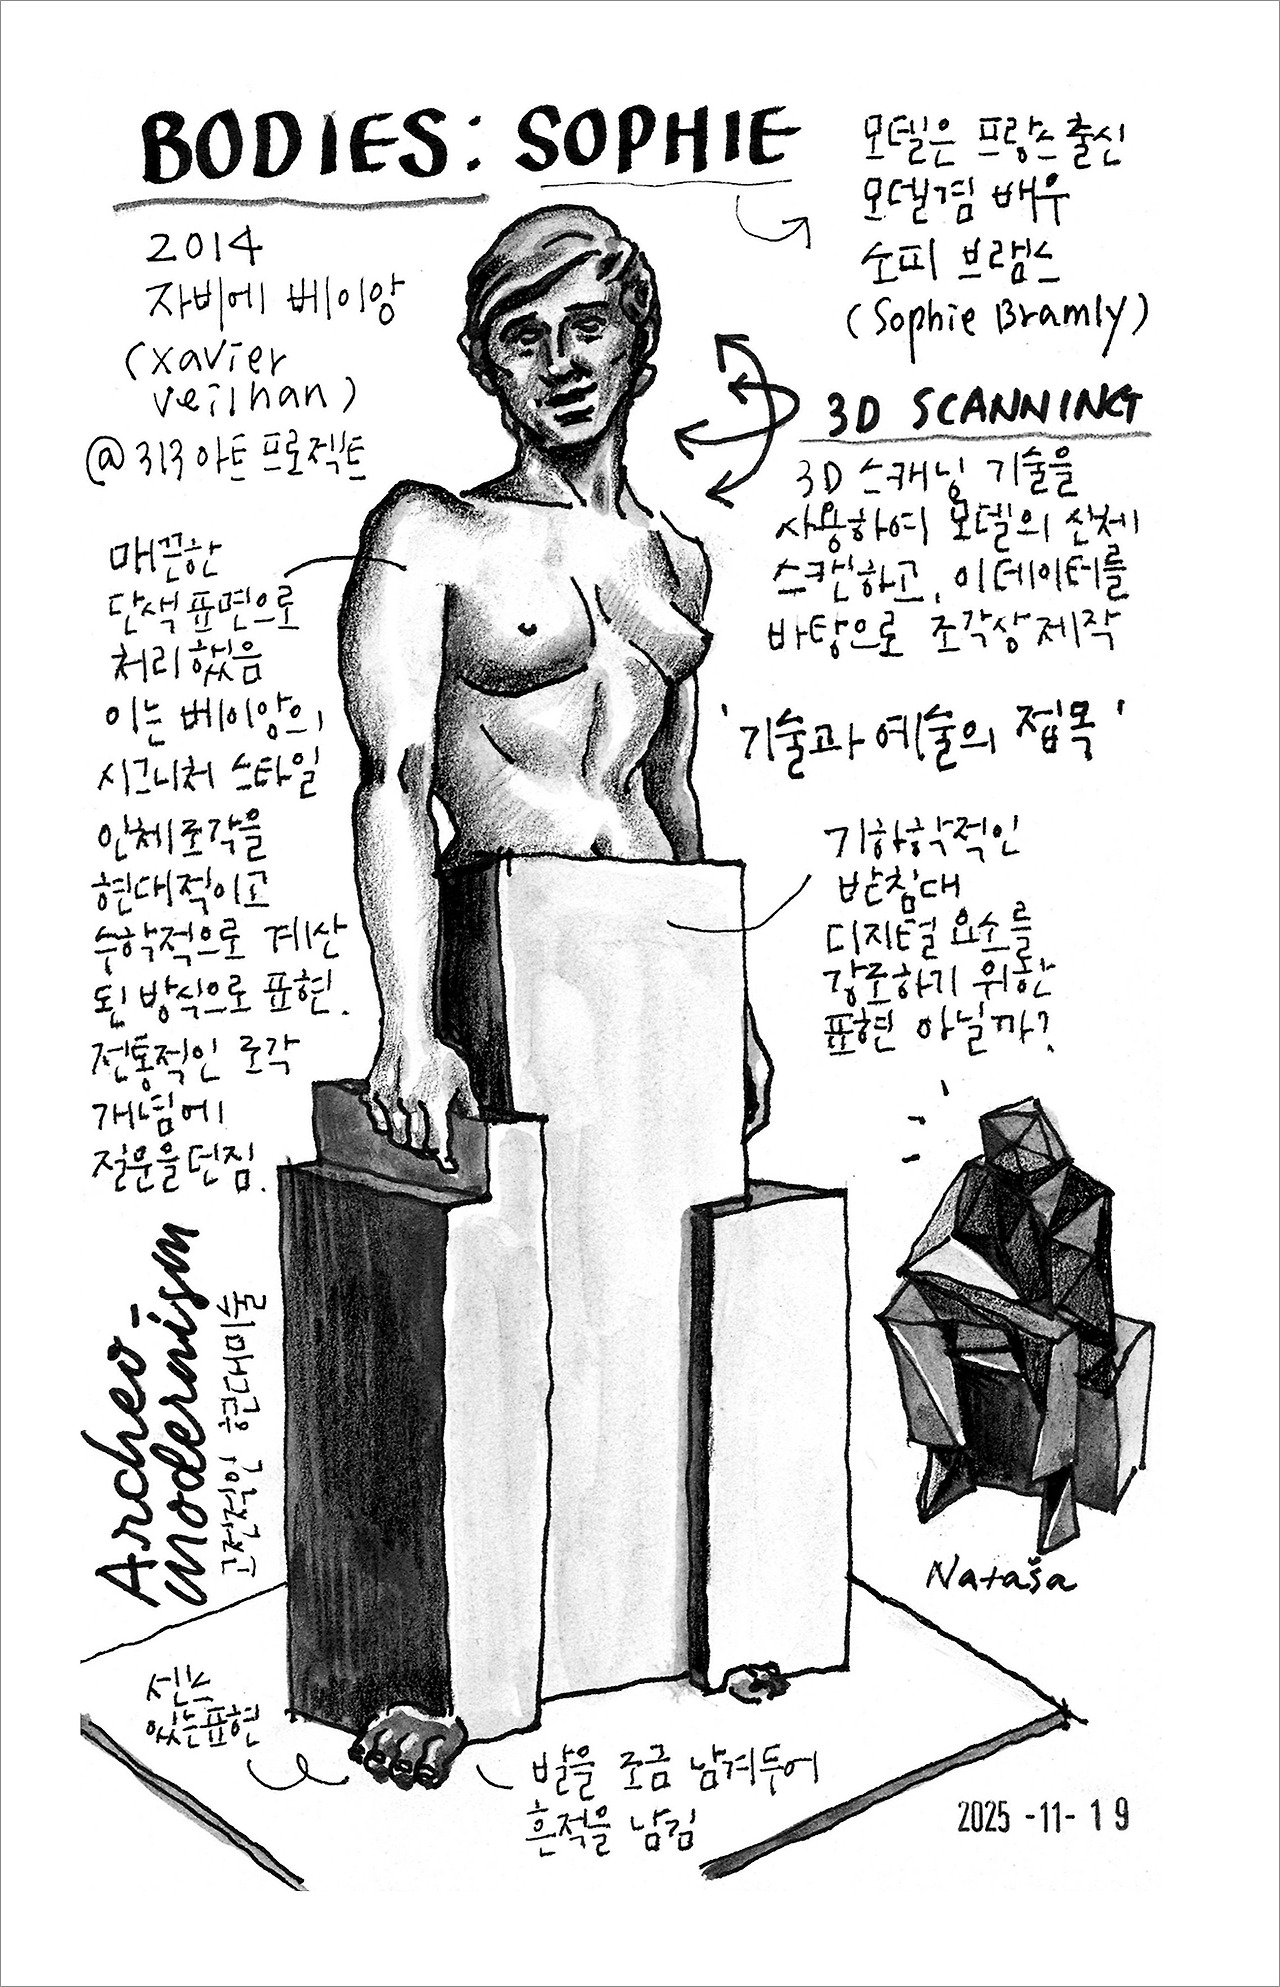 BODIES: SOPHIE
2014
자비에 베이앙
(xavier
veilhan)
@313아트프로젝트
모델은 프랑스출신
모델겸 배우
소피 브램스
(Sophie Bramly)
3D SCANNING
3D 스캐닝 기술을
사용하여 모델의 신체
스캔하고, 이데이터를
바탕으로 조각상제작
'기술과 예술의 접목'
매끈한
단색표면으로
처리했음
이는 베이앙의
시그니처 스타일
인체조각을
현대적이고
수학적으로 계산
된 방식으로 표현.
전통적인 조각
개념에
질문을던짐.
기하학적인
받침대
디지털 요소를
강조하기 위한
표현 아닐까?
Archeo-
modernism
고전적인 현대미술
Nataša
센스
있는표현
발을 조금 남겨두어
흔적을 남김
2025-11-19